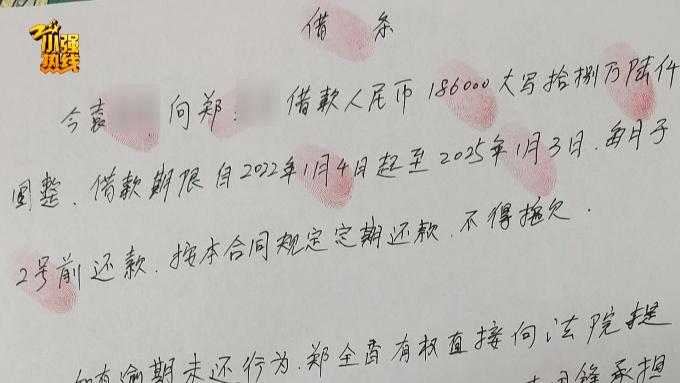 小强热线
借条
今袁 向郑: 借款人民币186000大写拾捌万陆仟
圆整、借款期限自2022年1月4日起至2025年1月3日、每月于
2号前还款、按本合同规定定期还款、不得拖欠.
如有逾期未还行为、郑全香有权直接向法院提
承担